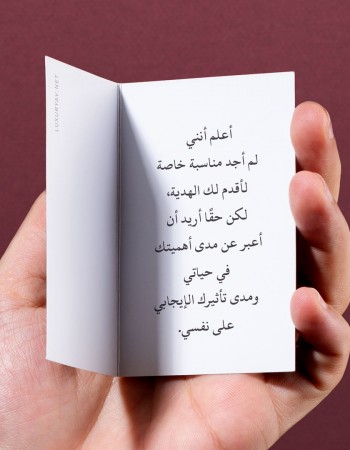 أعلم أنني
لم أجد مناسبة خاصة
لأقدم لك الهدية،
لكن حقًا أريد أن
أعبر عن مدى أهميتك
في حياتي
ومدى تأثيرك الإيجابي
على نفسي.
LUXURYBY.NET